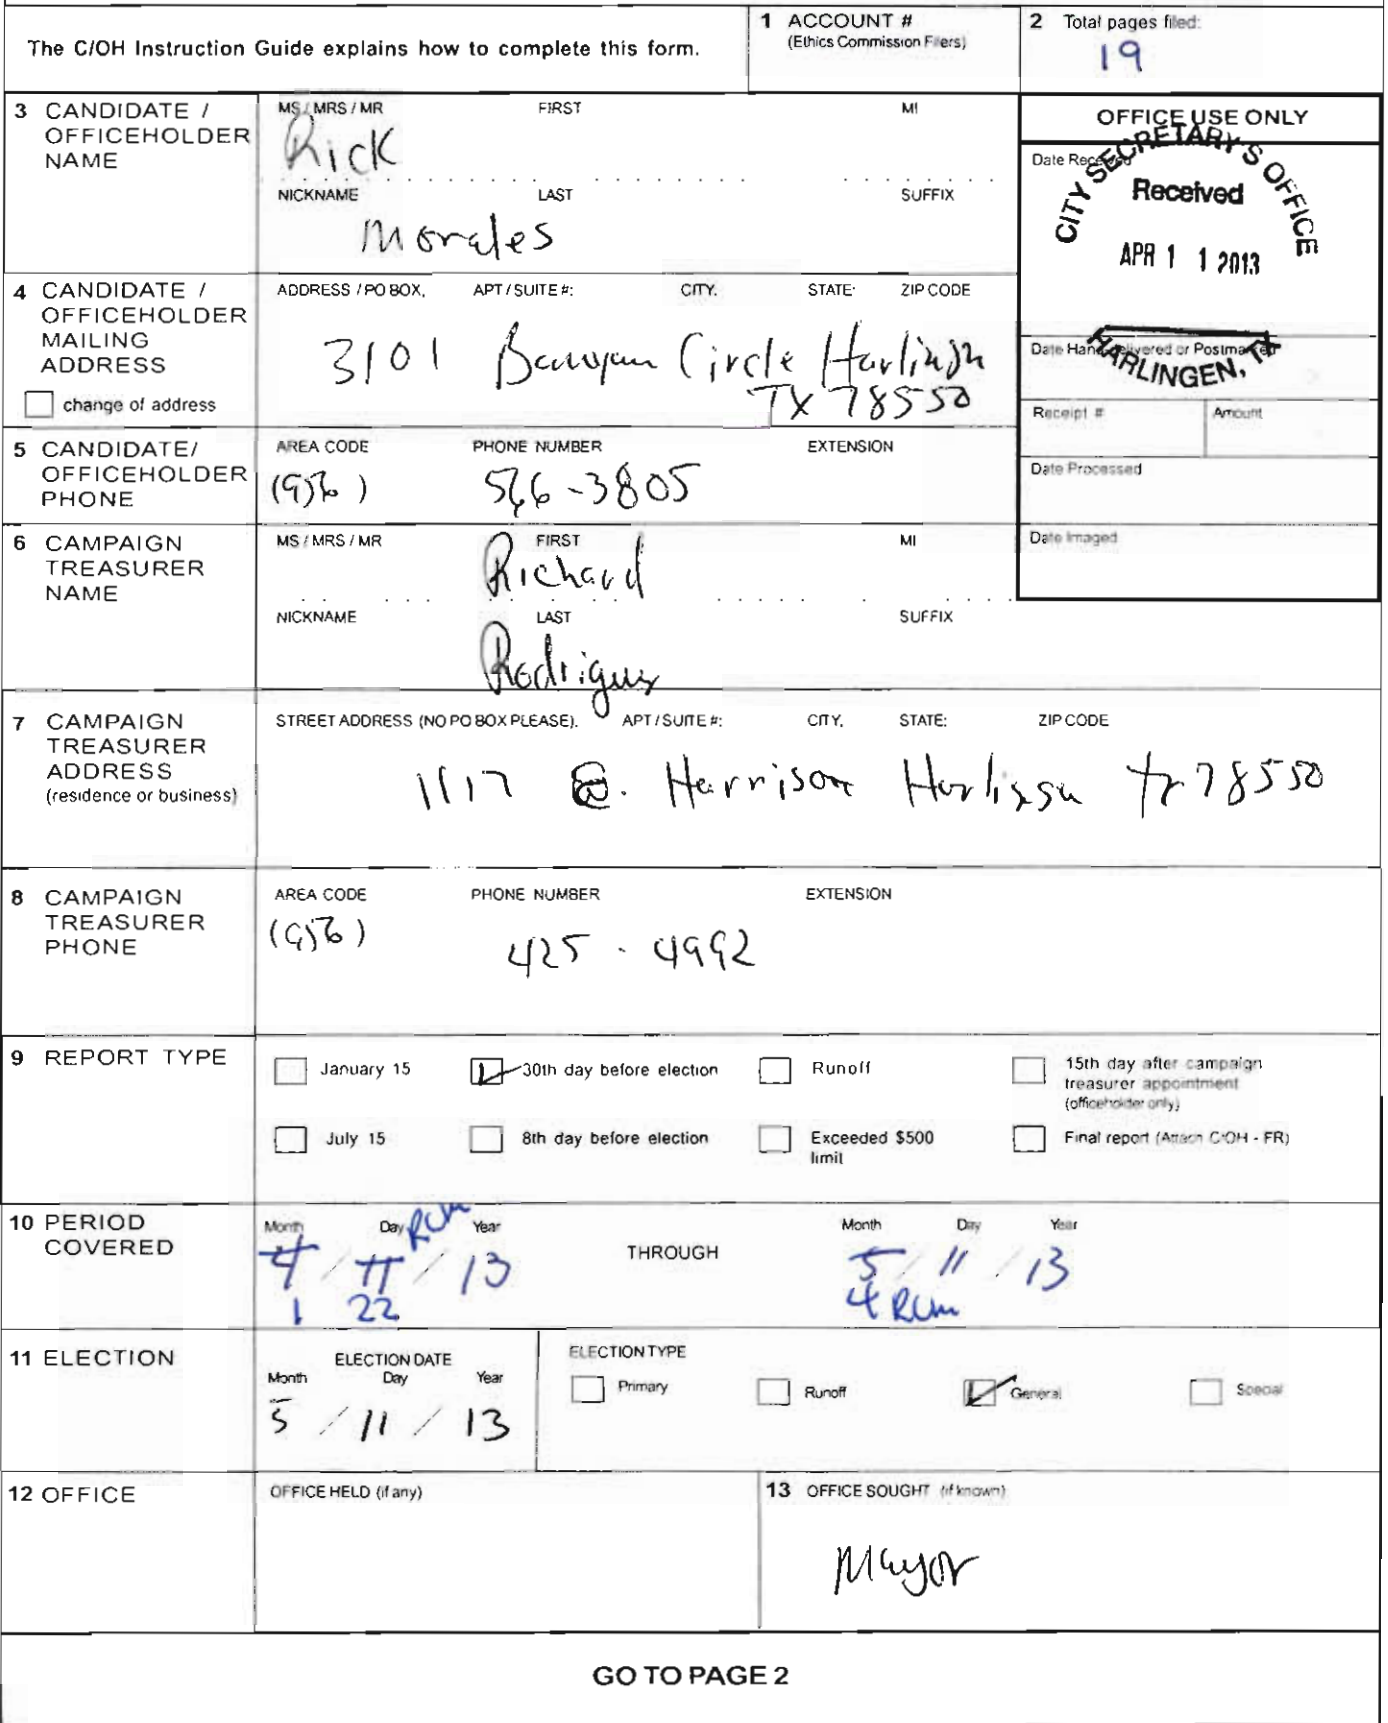 The C/OH Instruction Guide explains how to complete this form.
1 ACCOUNT #
(Ethics Commission Filers)
2 Total pages filed:
19
3 CANDIDATE / OFFICEHOLDER NAME
MS / MRS / MR FIRST MI
Rick
NICKNAME LAST SUFFIX
Morales
OFFICE USE ONLY
Date Received
CITY SECRETARY'S OFFICE
Received
APR 1 1 2013
HARLINGEN, TX
Date Hand-delivered or Postmarked
Receipt # Amount
Date Processed
Date Imaged
4 CANDIDATE / OFFICEHOLDER MAILING ADDRESS
change of address
ADDRESS / PO BOX, APT / SUITE #: CITY. STATE: ZIP CODE
3101 Banyan Circle Harlingen
TX 78550
5 CANDIDATE/ OFFICEHOLDER PHONE
AREA CODE PHONE NUMBER EXTENSION
(956) 566-3805
6 CAMPAIGN TREASURER NAME
MS / MRS / MR FIRST MI
Richard
NICKNAME LAST SUFFIX
Rodriguez
7 CAMPAIGN TREASURER ADDRESS
(residence or business)
STREET ADDRESS (NO PO BOX PLEASE). APT / SUITE #: CITY, STATE: ZIP CODE
1117 Harrison Harlingen tx 78550
8 CAMPAIGN TREASURER PHONE
AREA CODE PHONE NUMBER EXTENSION
(956) 425 - 4992
9 REPORT TYPE
January 15 30th day before election Runoff 15th day after campaign treasurer appointment (officeholder only)
July 15 8th day before election Exceeded $500 limit Final report (Attach C/OH - FR)
10 PERIOD COVERED
Month Day RCM Year
4 / 11 / 13
1 22
THROUGH
Month Day Year
5 / 11 / 13
4 RCM
11 ELECTION
ELECTION DATE
Month Day Year
5 / 11 / 13
ELECTION TYPE
Primary Runoff General Special
12 OFFICE
OFFICE HELD (if any)
13 OFFICE SOUGHT (if known)
Mayor
GO TO PAGE 2